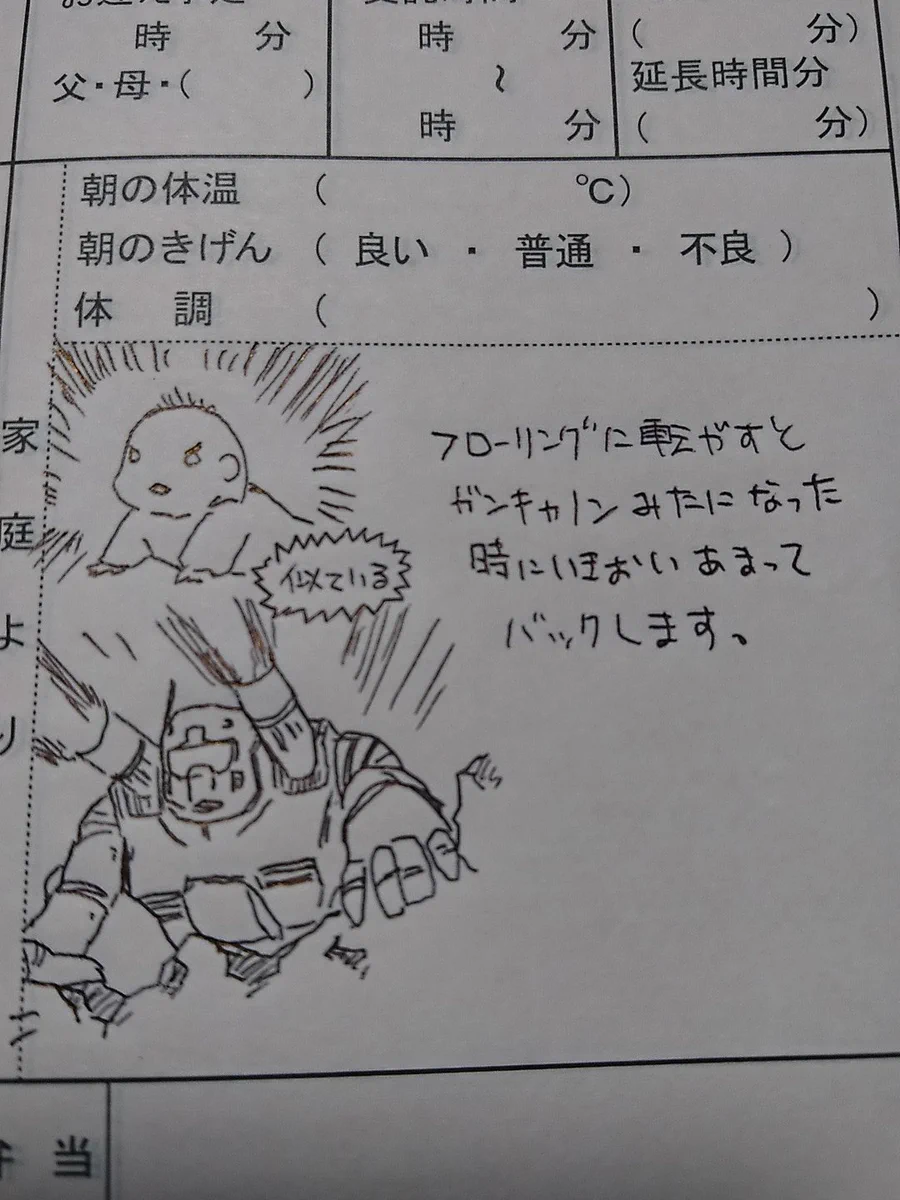 時 分
父・母・( )
時 分
～
時 分
( 分)
延長時間分
( 分)
朝の体温 ( ℃)
朝のきげん ( 良い ・ 普通 ・ 不良 )
体 調 ( )
家庭より
フローリングに転がすと
ガンキャノンみたになった
時にいきおいあまって
バックします。
似ている
弁当